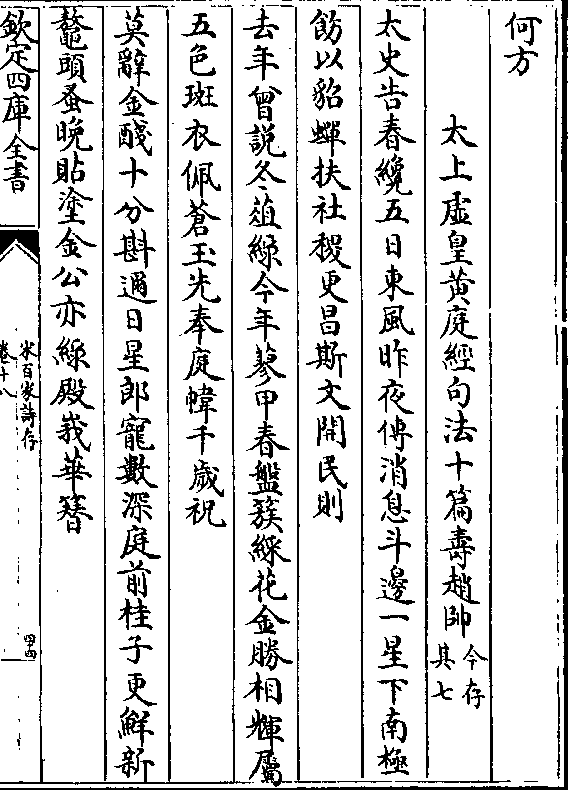 何方
太上虛皇黃庭經句法十篇壽趙帥今存其七
太史告春纔五日東風昨夜傳消息斗邊一星下南極
飭以貂蟬扶社稷更昌斯文開民則
去年曾說冬菹綠今年蓼甲春盤簇綵花金勝相輝屬
五色斑衣佩蒼玉先奉庭幃千歲祝
莫辭金醆十分斟邇日星郎寵數深庭前桂子更鮮新
鼇頭蚤晚貼塗金公亦綠殿峩華簪
欽定四庫全書
宋百家詩存
卷十八
四四